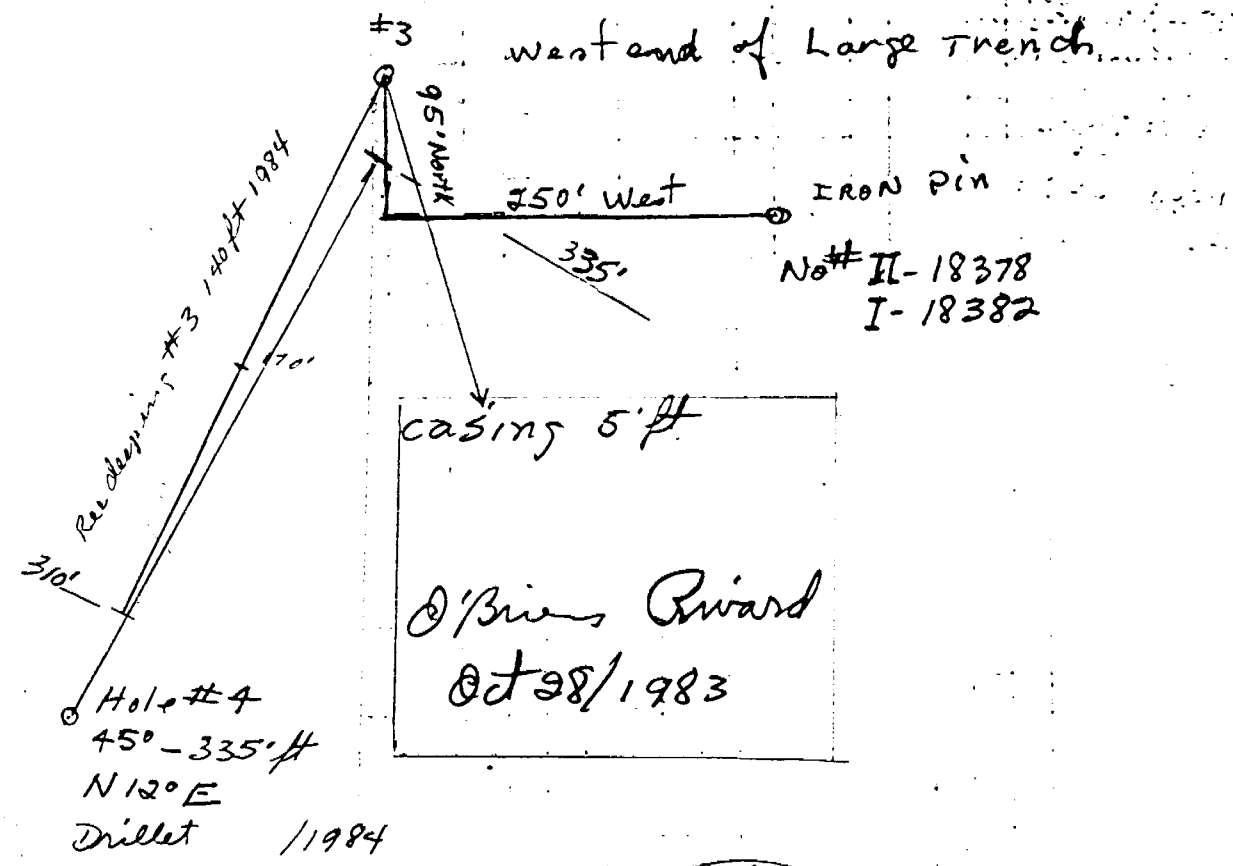 #3
West end of Large Trench
95' North
250' West
IRON Pin
335'
No# II-18378
I-18382
Ree deeping #3 140 ft 1984
70'
casing 5' ft
310'
O'Briens Rivard
Oct 28/1983
Hole #4
45° - 335' ft
N 12° E
Drillet /1984